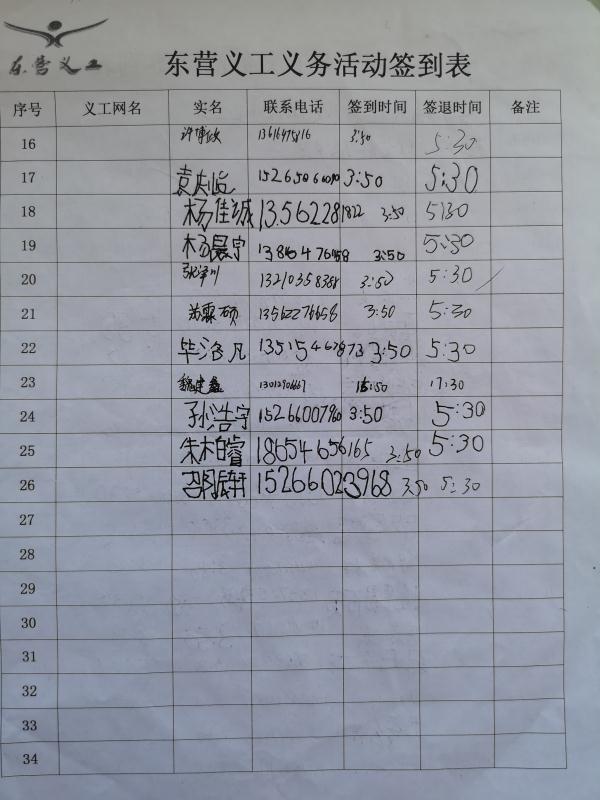 东营义工
东营义工义务活动签到表
序号 义工网名 实名 联系电话 签到时间 签退时间 备注
16 3:50 5:30
17 3:50 5:30
18 杨佳诚 3:50 5:30
19 杨晨宇 3:50 5:30
20 13210358388 3:50 5:30
21 苏霖硕 13562276658 3:50 5:30
22 毕洺凡 13515467873 3:50 5:30
23 魏建鑫 15:50 17:30
24 孙浩宇 15266007960 3:50 5:30
25 朱柏睿 18654656165 3:50 5:30
26 邵振轩 15266023968 3:50 5:30
27
28
29
30
31
32
33
34